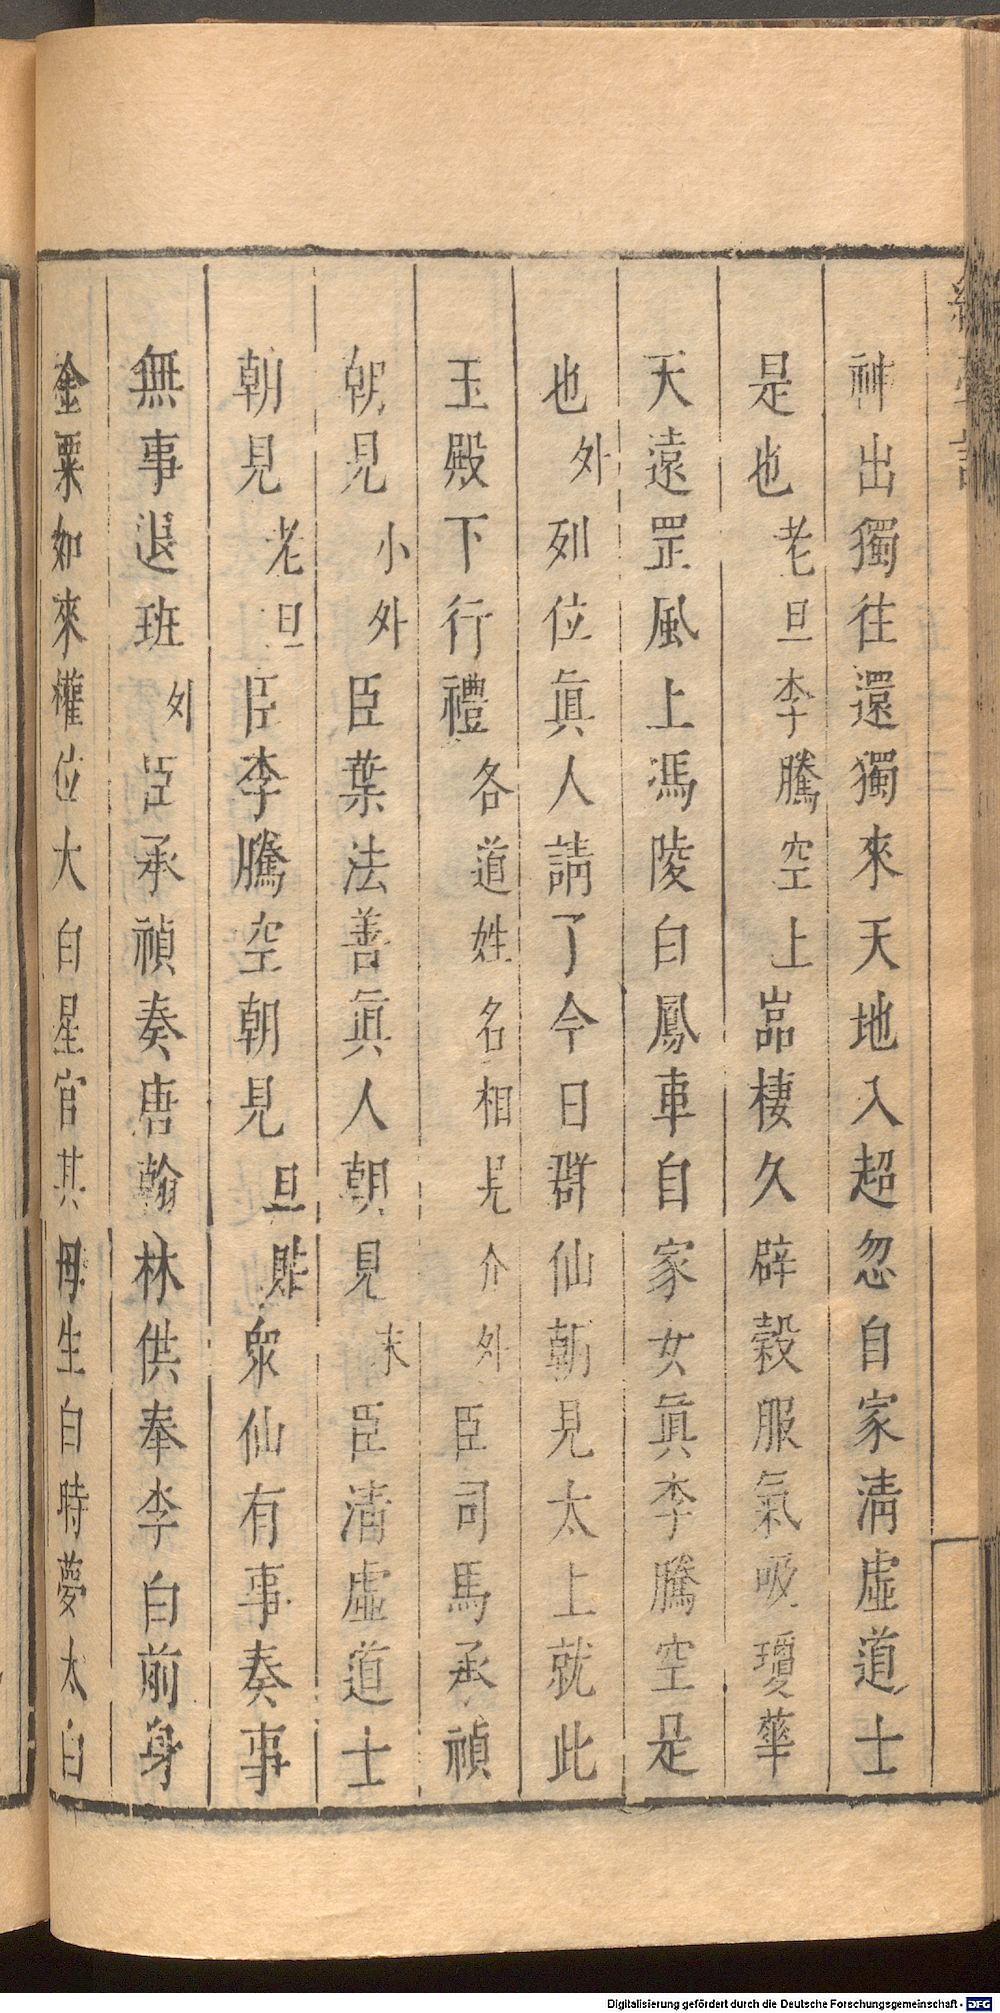 神出獨往還獨來天地入超忽自家清虛道士
是也老旦李騰空上嵓棲久辟穀服氣吸瓊華
天遠罡風上馮陵白鳳車自家女眞李騰空是
也外列位眞人請了今日群仙朝見太上就此
玉殿下行禮各道姓名相見介外臣司馬承禎
朝見小外臣葉法善眞人朝見末臣清虛道士
朝見老旦臣李騰空朝見旦貼衆仙有事奏事
無事退班外臣承禎奏唐翰林供奉李白前身
金粟如來權位太白星官其母生白時夢太白
Digitalisierung gefördert durch die Deutsche Forschungsgemeinschaft - DFG